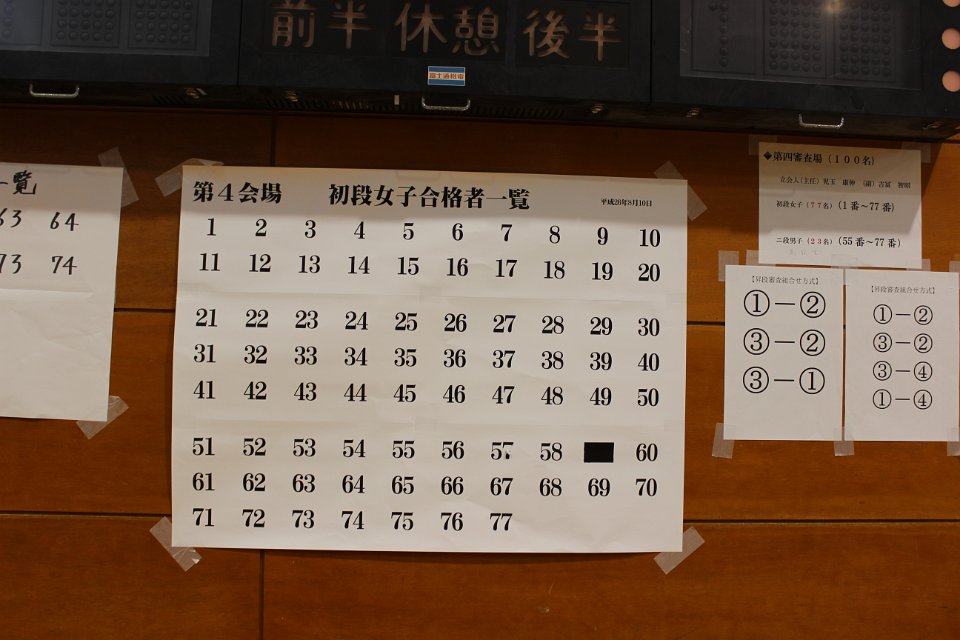 前半 休憩 後半
富士通特機
一覧
63 64
73 74
第4会場 初段女子合格者一覧 平成26年8月10日
1 2 3 4 5 6 7 8 9 10
11 12 13 14 15 16 17 18 19 20
21 22 23 24 25 26 27 28 29 30
31 32 33 34 35 36 37 38 39 40
41 42 43 44 45 46 47 48 49 50
51 52 53 54 55 56 57 58 60
61 62 63 64 65 66 67 68 69 70
71 72 73 74 75 76 77
◆第四審査場(100名)
立会人(主任)児玉 康伸 (副)吉冨 智昭
初段女子(77名)(1番~77番)
二段男子(23名)(55番~77番)
【昇段審査組合せ方式】
①-②
③-②
③-①
【昇段審査組合せ方式】
①-②
③-②
③-④
①-④